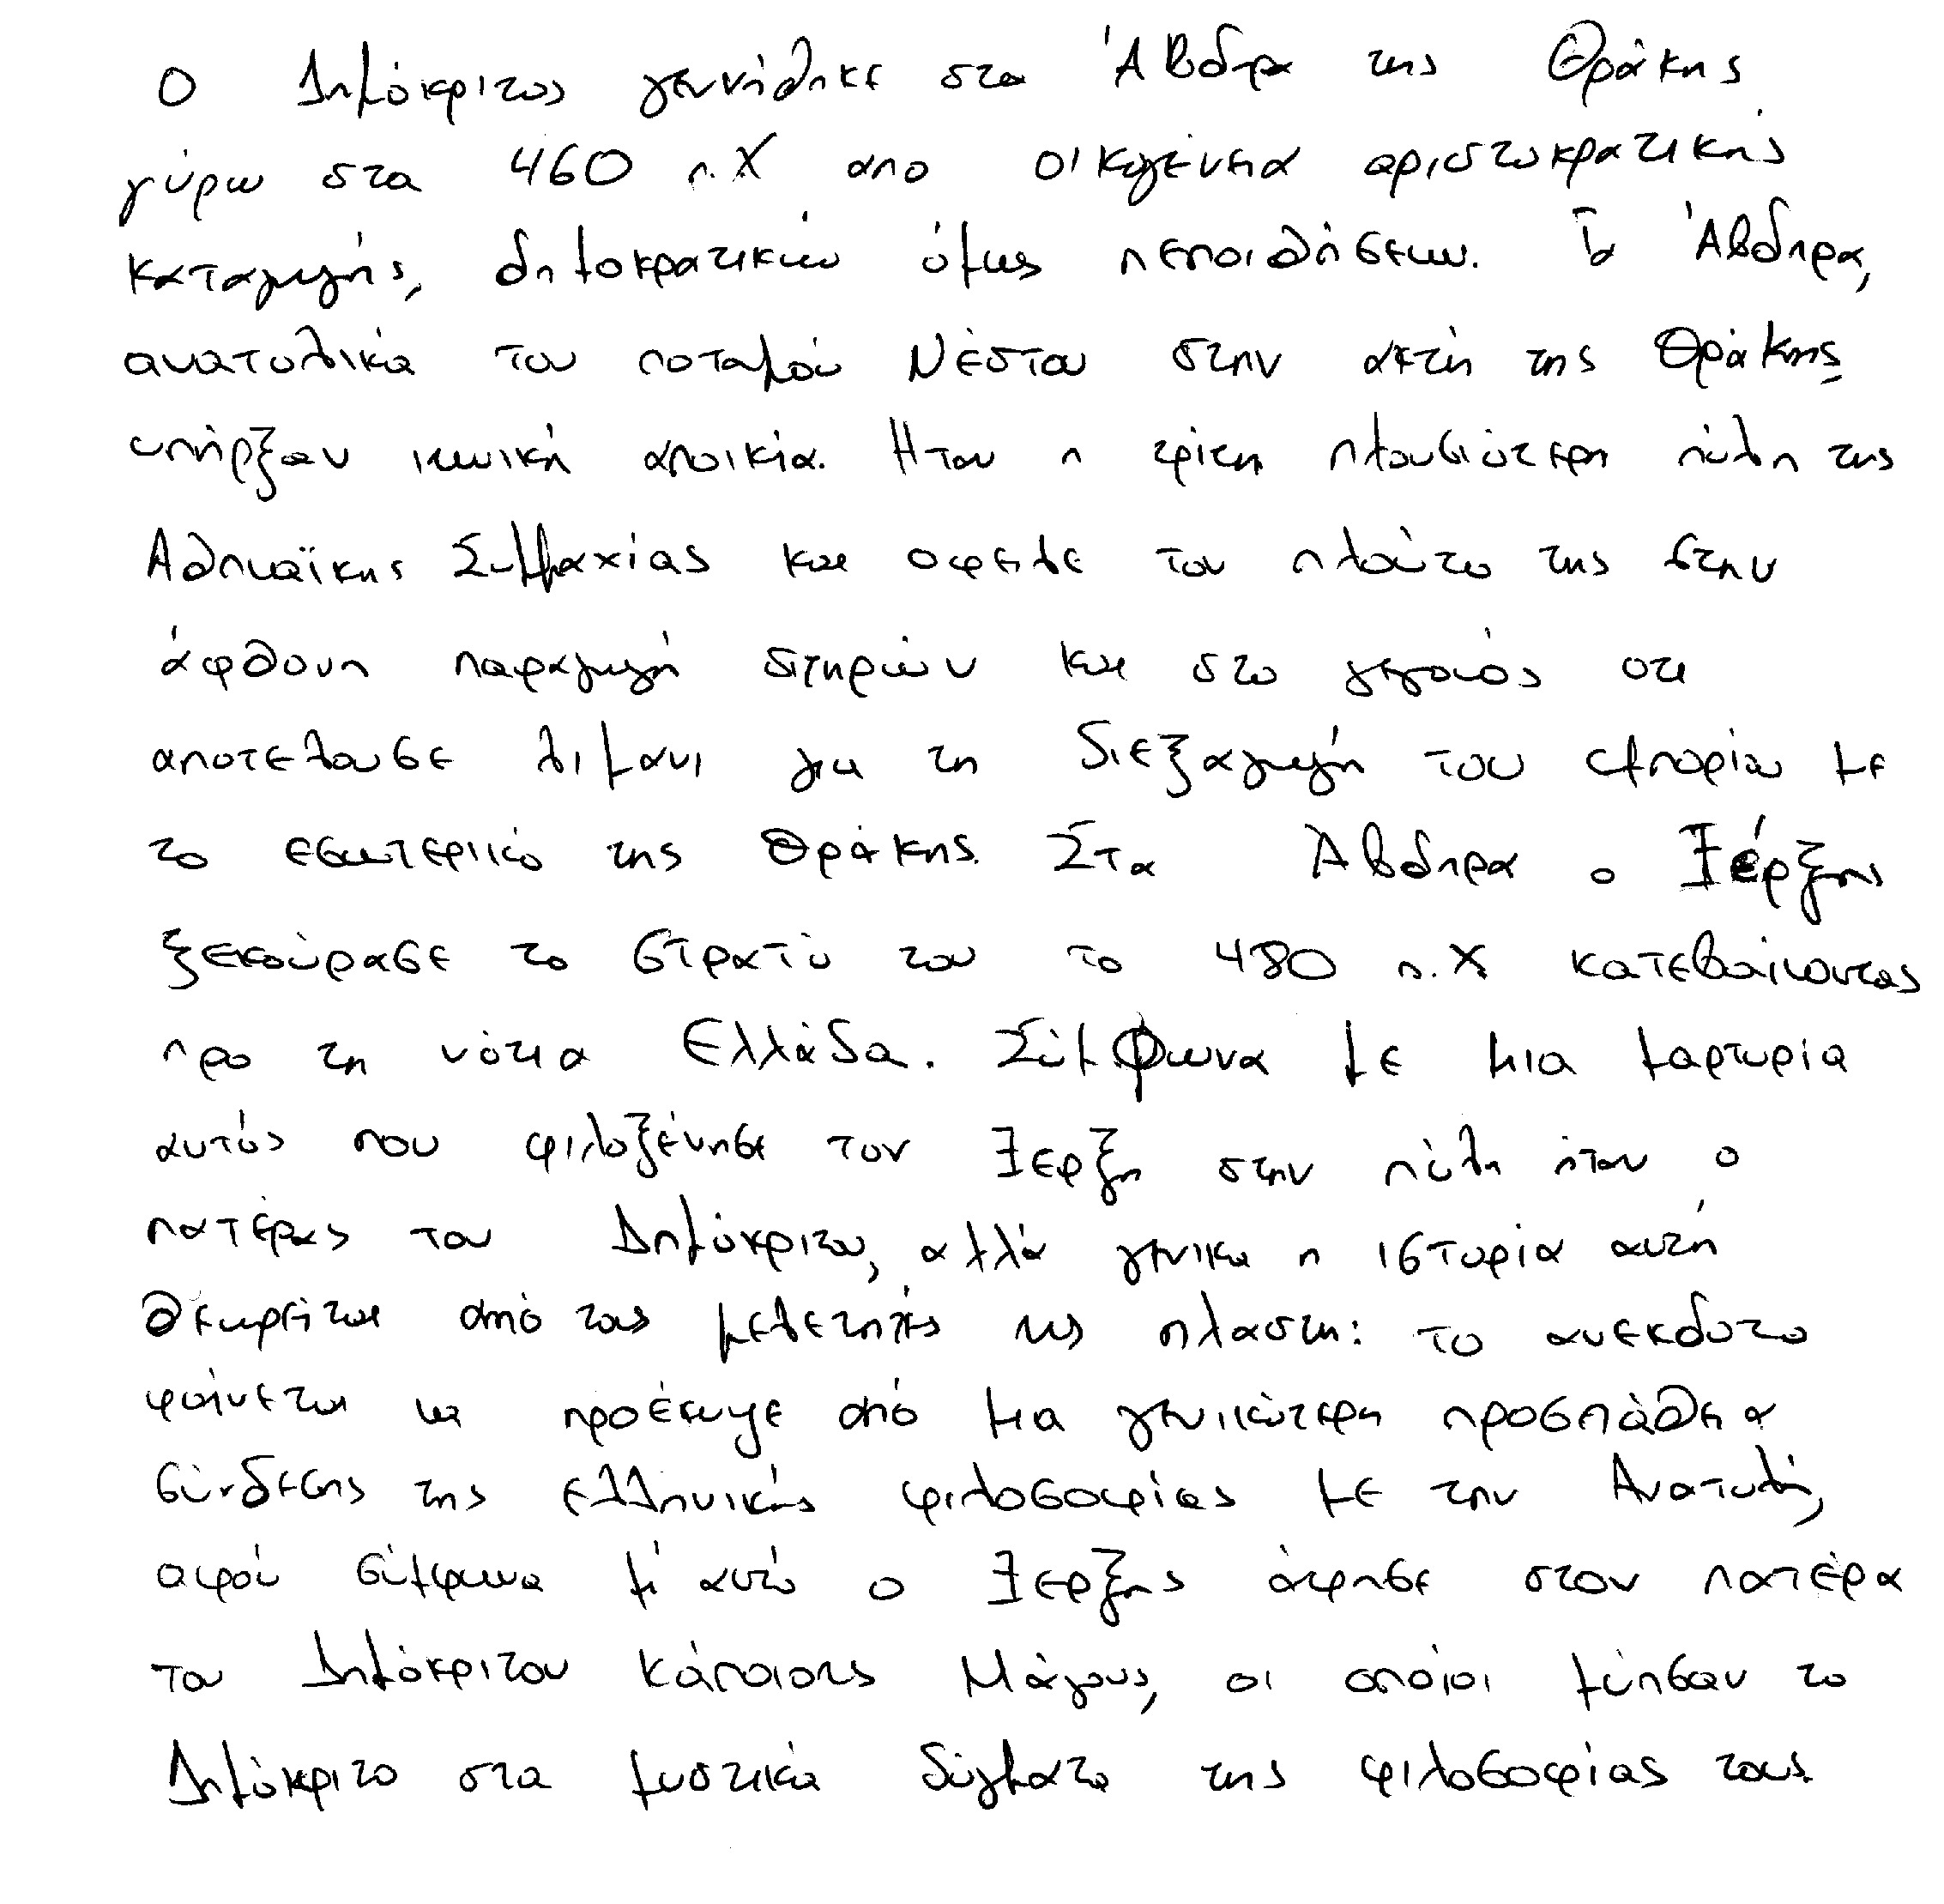 Ο Δημόκριτος γεννήθηκε στα Άβδηρα της Θράκης
γύρω στα 460 π.Χ απο οικογένεια αριστοκρατικής
καταγωγής, δημοκρατικών όμως πεποιθήσεων. Τα Άβδηρα,
ανατολικά του ποταμού Νέστου στην ακτή της Θράκης,
υπήρξαν ιωνική αποικία. Ηταν η τρίτη πλουσιότερη πόλη της
Αθηναϊκης Συμμαχίας και οφειλε τον πλούτο της στην
άφθονη παραγωγή σιτηρών και στο γεγονός οτι
αποτελουσε λιμανι για τη διεξαγωγή του εμπορίου με
το εσωτερικό της Θράκης. Στα Άβδηρα ο Ξέρξης
ξεκούρασε το στρατό του το 480 π.Χ κατεβαίνοντας
προ τη νότια Ελλάδα. Σύμφωνα με μια μαρτυρία
αυτός που φιλοξένησε τον Ξερξη στην πόλη ήταν ο
πατέρας του Δημόκριτου, αλλά γενικα η ιστορία αυτή
θεωρείται από τους μελετητές ως πλαστη: το ανεκδοτο
φαίνεται να προέκυψε από μια γενικότερη προσπάθεια
σύνδεσης της ελληνικής φιλοσοφίας με την Ανατολή,
αφού σύμφωνα μ' αυτό ο Ξερξης άφησε στον πατέρα
του Δημόκριτου κάποιους Μάγους, οι οποίοι μύησαν το
Δημόκριτο στα μυστικά δόγματα της φιλοσοφίας τους.